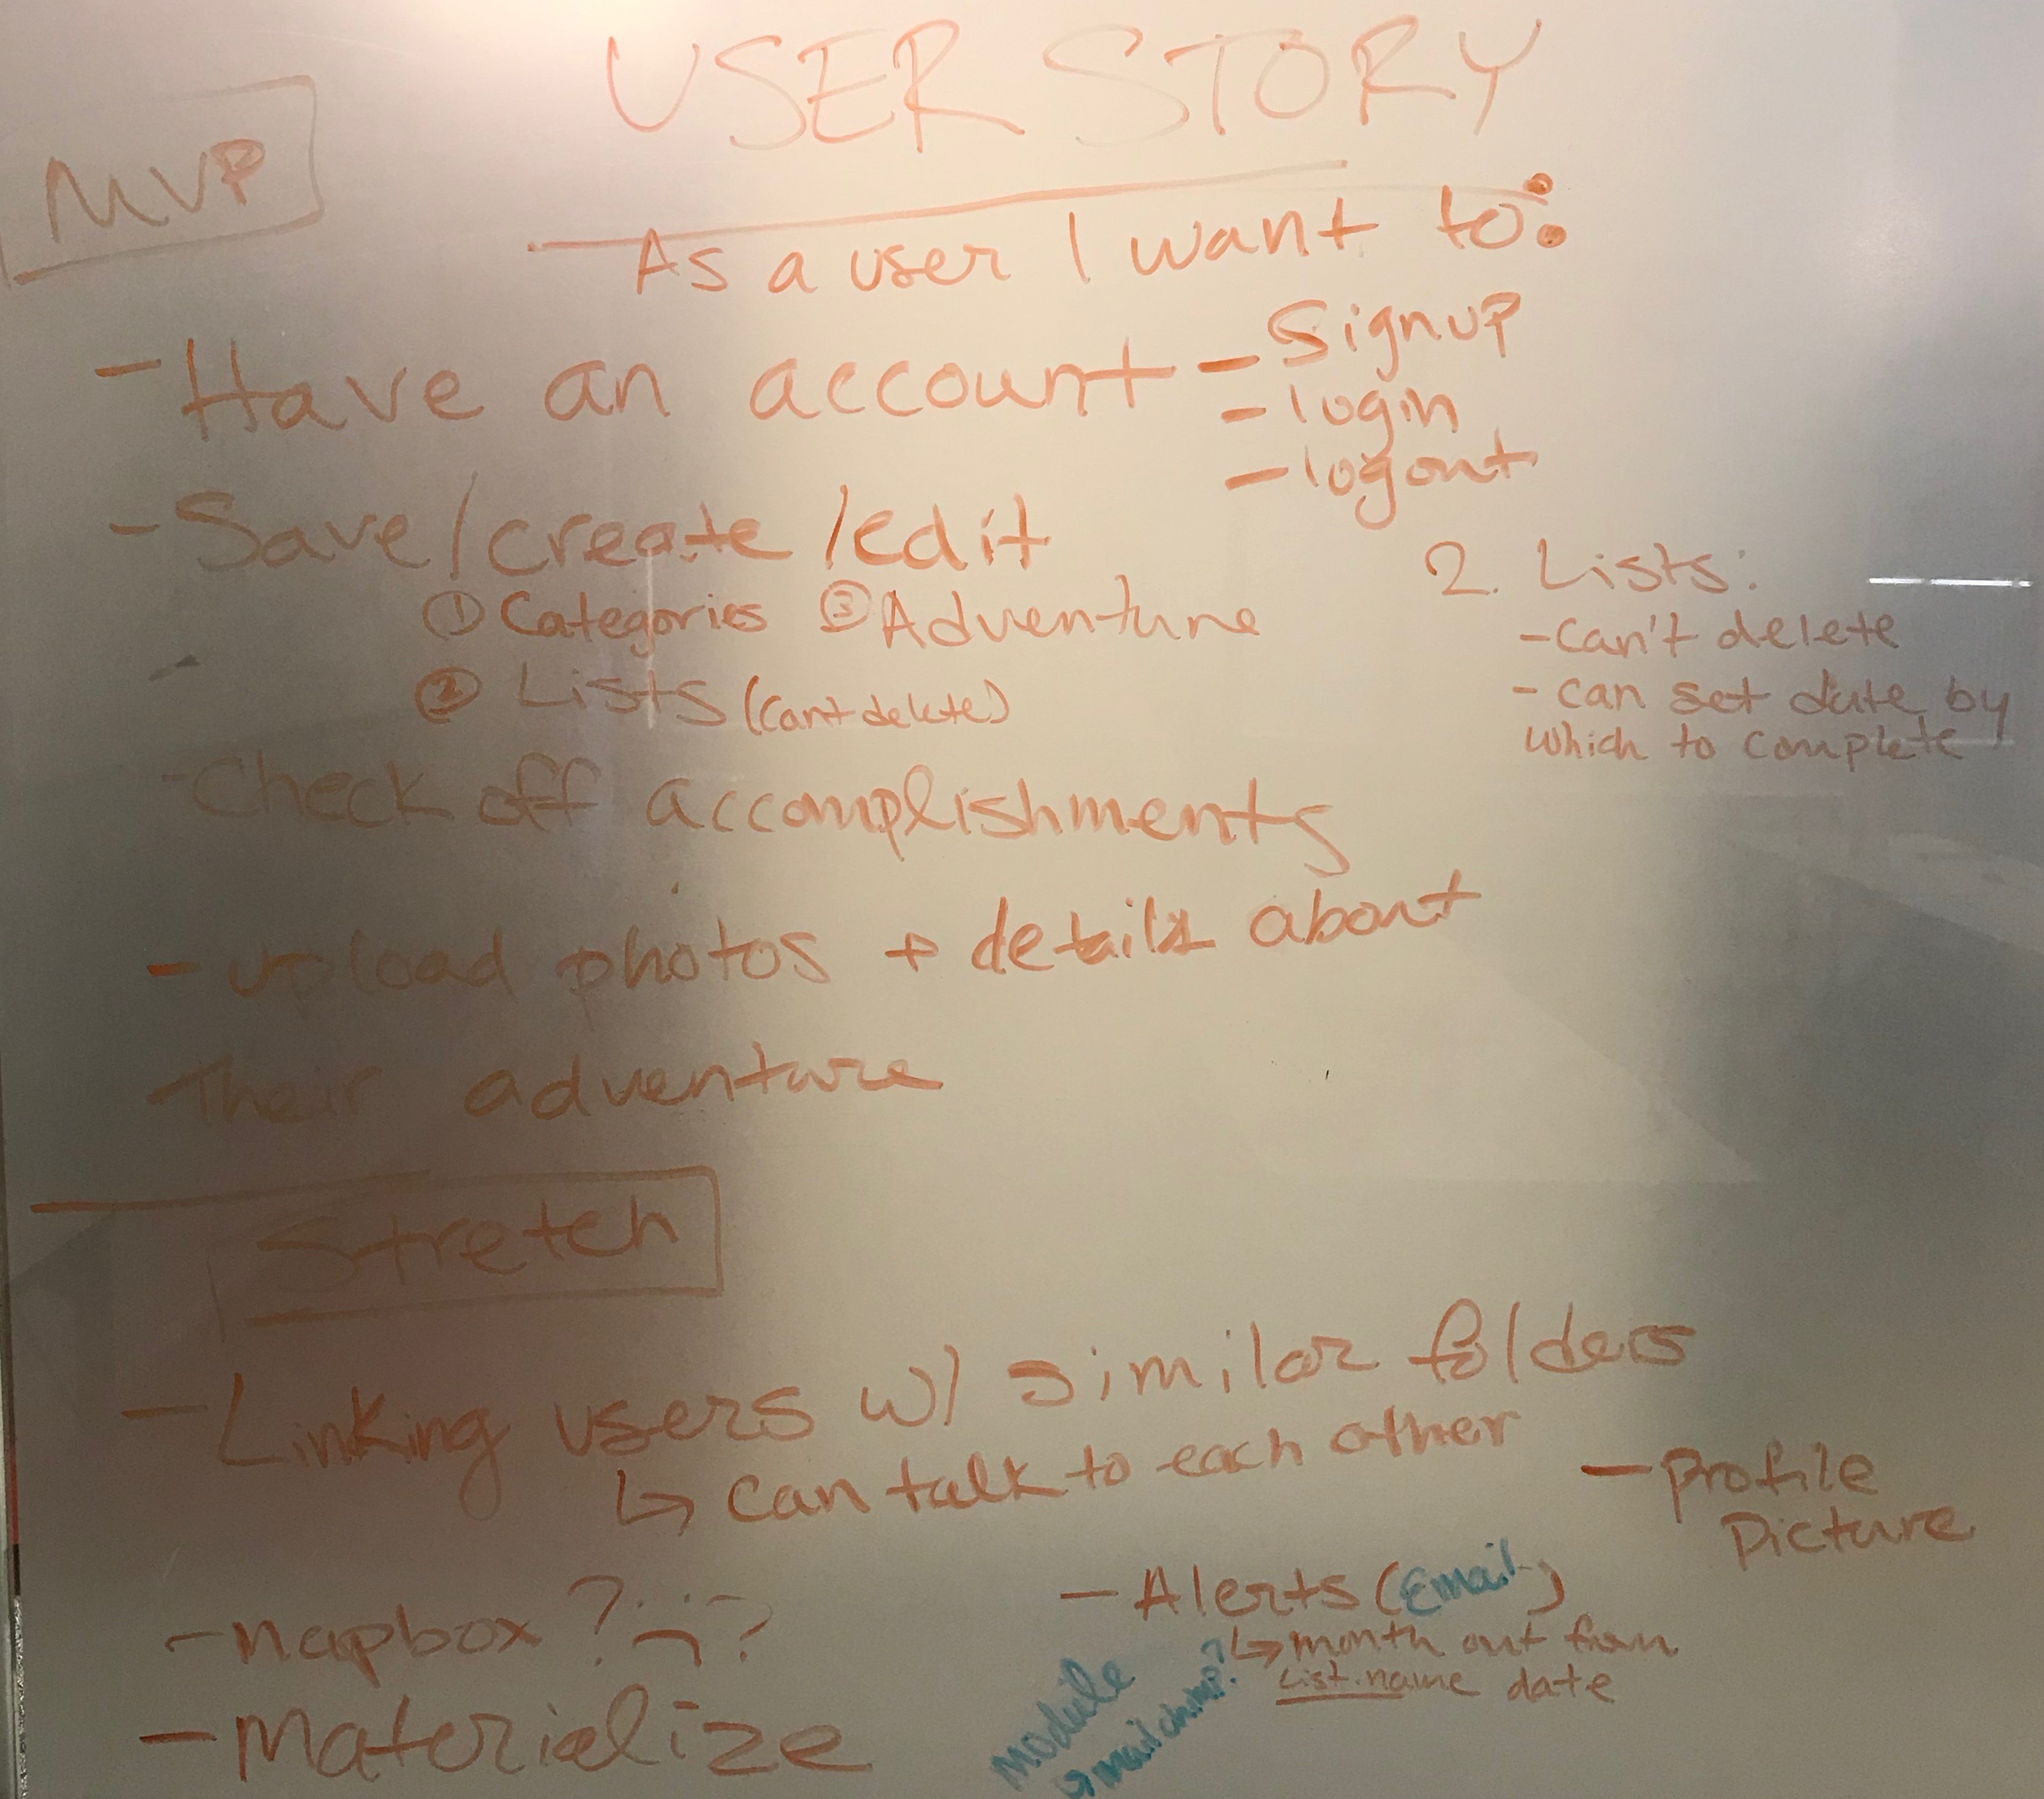 USER STORY
MVP
As a user I want to:
- Have an account - Signup
- login
- logout
- Save/create/edit
① Categories ③ Adventure
② Lists (Cant delete)
2. Lists:
- Can't delete
- can set date by
which to complete
- Check off accomplishments
- upload photos + details about
their adventure
Stretch
- Linking users w/ similar folders
↳ can talk to each other
- Profile
Picture
- Alerts (Email)
↳ month out from
List.name date
module
↳ mailchimp?
- mapbox ? :( ?
- Materialize